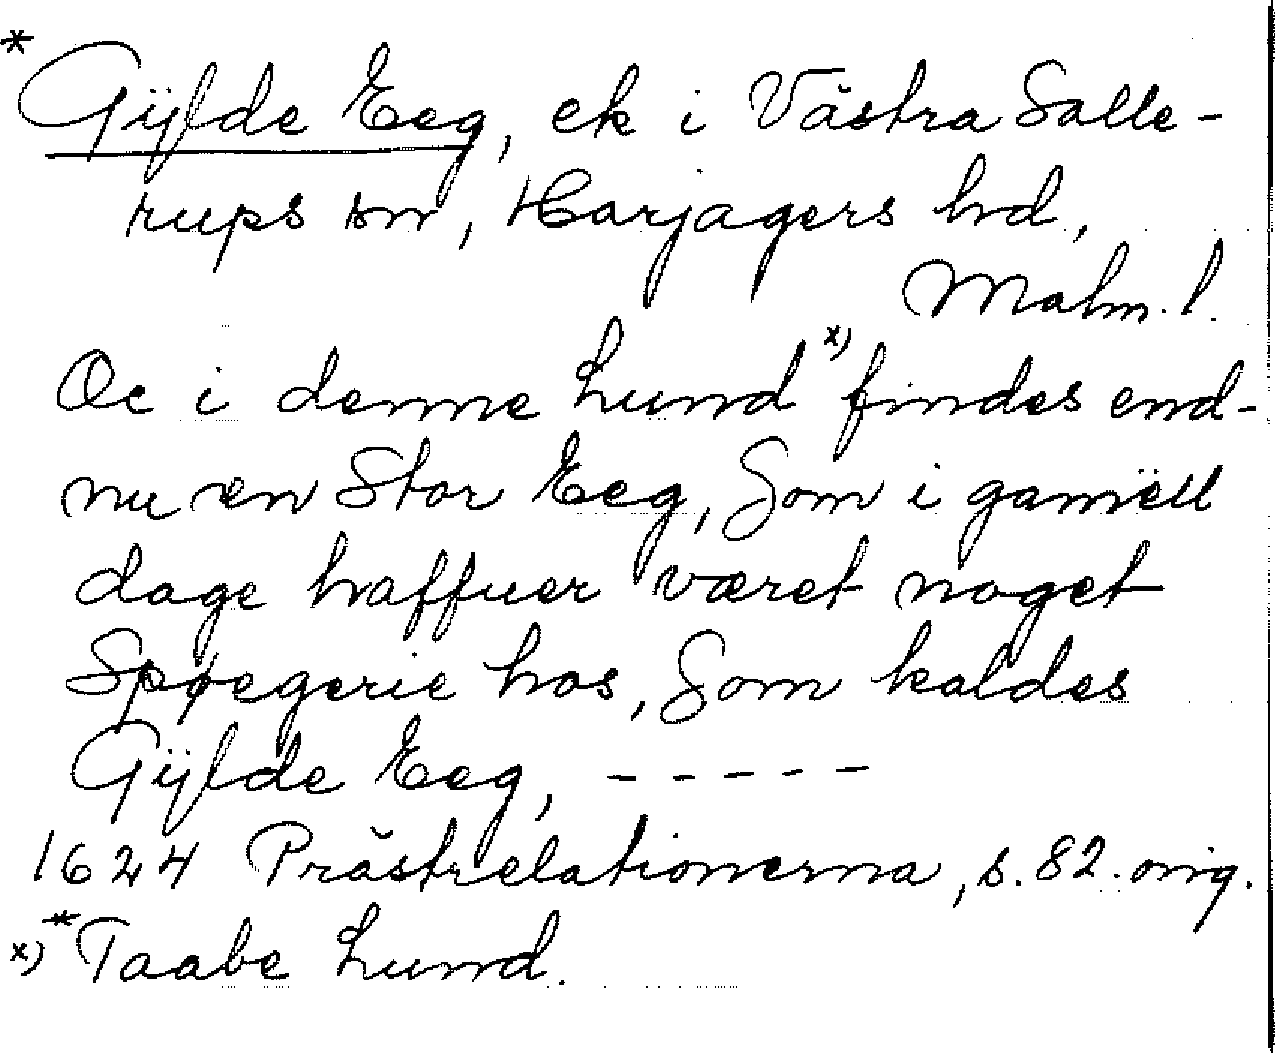 * Gÿlde Eeg, ek i Västra Salle-
rups sn, Harjagers hd,
Malm. l.
Oc i denne Lund x) findes end-
nu en Stor Eeg, Som i gamëll
dage haffuer været noget
Spøegerie hos, Som kaldes
Gÿlde Eeg, - - - - -
1624 Prästrelationerna, s. 82. orig.
x) * Taabe Lund.